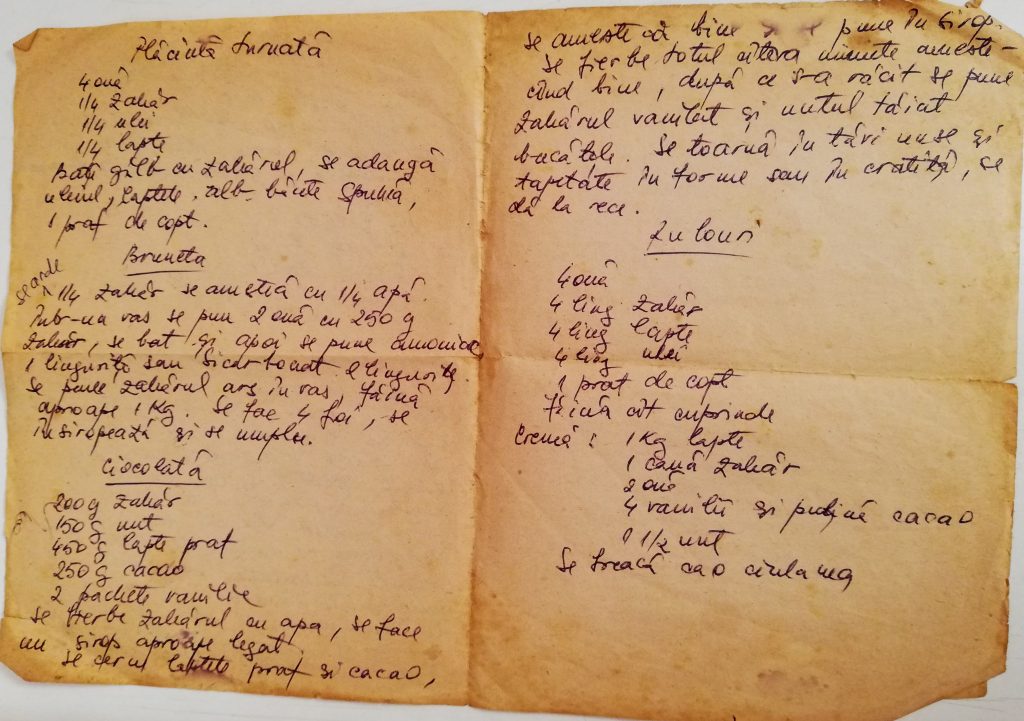 Plăcintă turnată
4 ouă
1/4 zahăr
1/4 ulei
1/4 lapte
Bate gălb cu zahărul, se adaugă
uleiul, laptele. alb. bătute spumă,
1 praf de copt.
Bruneta
se arde
1/4 zahăr se amestică cu 1/4 apă.
Într-un vas se pun 2 ouă cu 250 g
zahăr, se bat și apoi se pune amoniac
1 linguriță sau bicarbonat linguriță.
se pune zahărul ars în vas făină
aproape 1 Kg. Se fac 4 foi, se
însiropează și se umplu.
Ciocolată
200g zahăr
150g unt
450g lapte praf
250g cacao
2 pachete vanilie
se fierbe zahărul cu apa, se face
un sirop aproape legat
se cerul laptele praf și cacao,
se amestecă bine pune în sirop.
Se fierbe totul câteva minute ameste-
când bine, după ce s-a răcit se pune
zahărul vanilat și untul tăiat
bucățele. Se toarnă în tăvi unse și
tapitate în forme sau în cratiță, se
dă la rece.
Rulouri
4 ouă
4 ling zahăr
4 ling lapte
4 ling ulei
1 praf de copt
făină cît cuprinde
Cremă: 1 Kg lapte
1 cană zahăr
2 ouă
4 vanilii și puțină cacao
1 1/2 unt
Se freacă cao